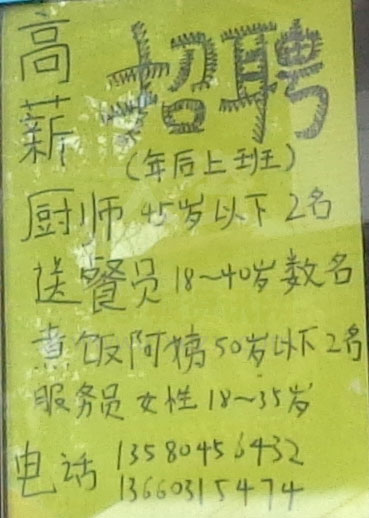 高薪招聘
(年后上班)
厨师 45岁以下 2名
送餐员 18~40岁数名
煮饭阿姨 50岁以下 2名
服务员 女性 18~35岁
电话 13580456432
13660315474